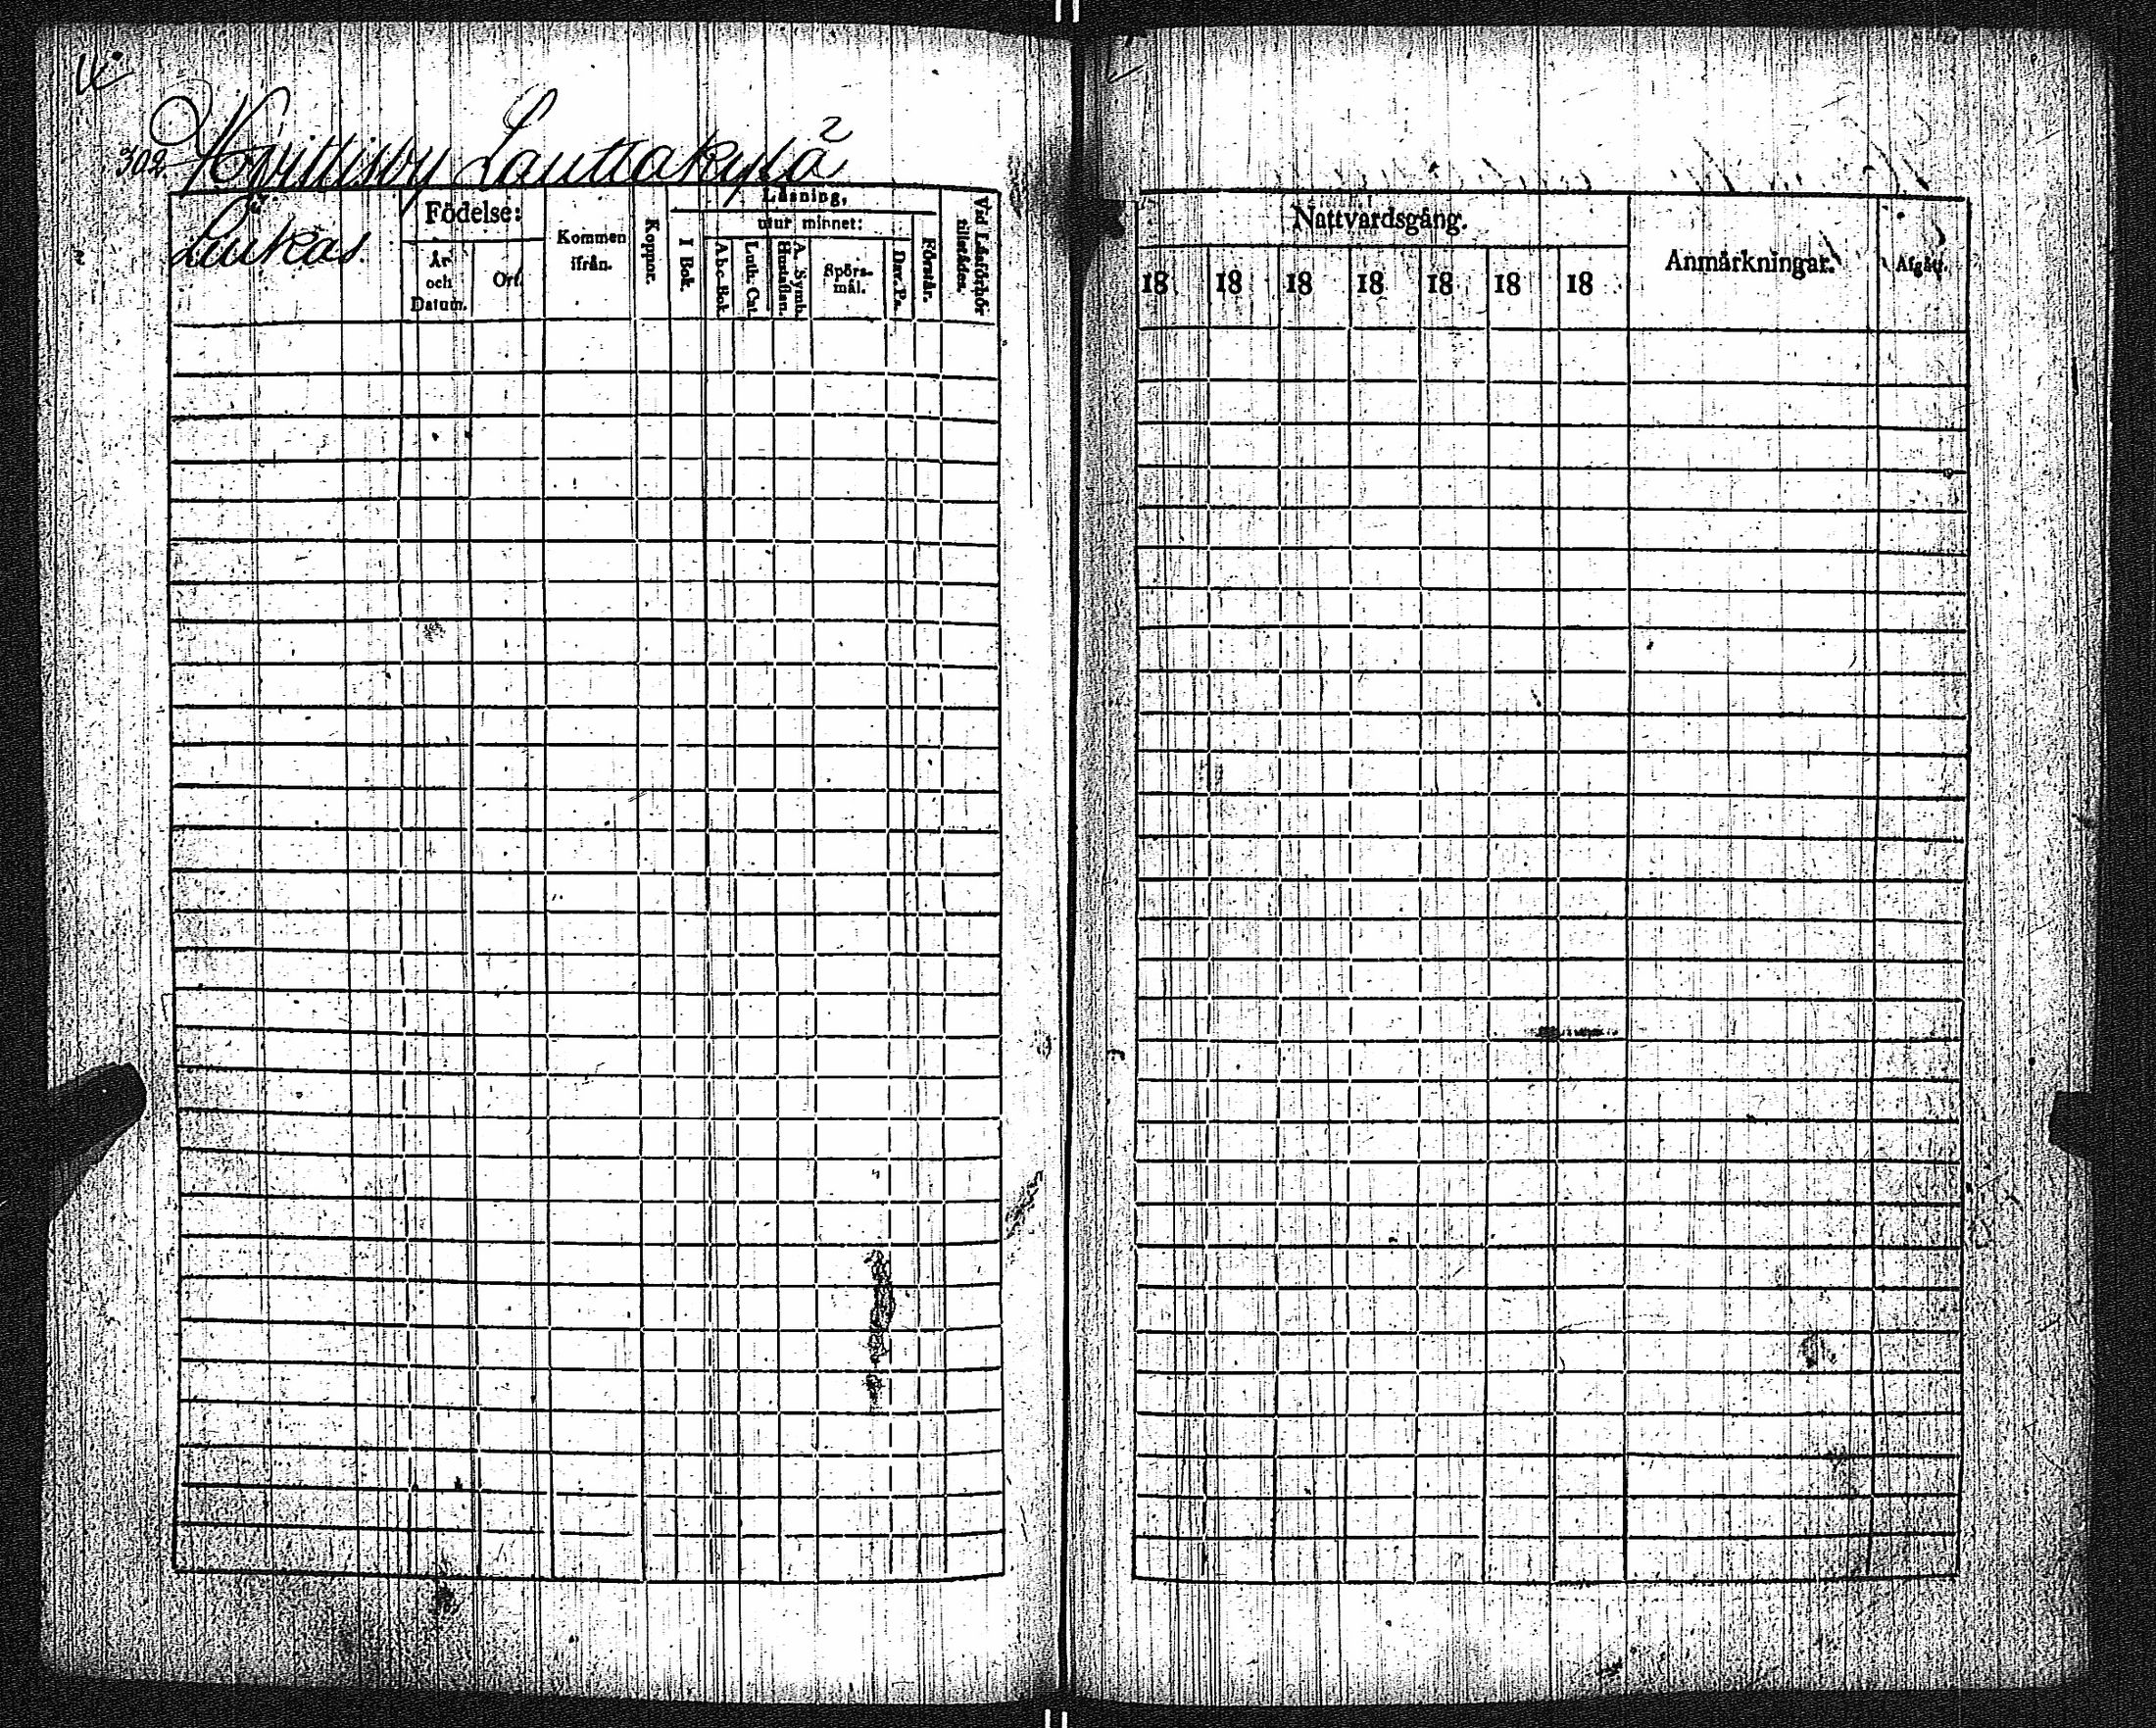 302 Hvittisby Lauttakylä
Lukas
Födelse:
År och Datum.
Ort.
Kommen ifrån.
Koppor.
Läsning,
I Bok.
utur minnet:
A.b.c. Bok.
Luth. Cat.
A. Symb. Hustaflan.
Spörsmål.
Dav. Ps.
Förstår.
Vid Läsförhör tillstädes.
Nattvardsgång.
18 18 18 18 18 18 18
Anmärkningar.
Afgått.